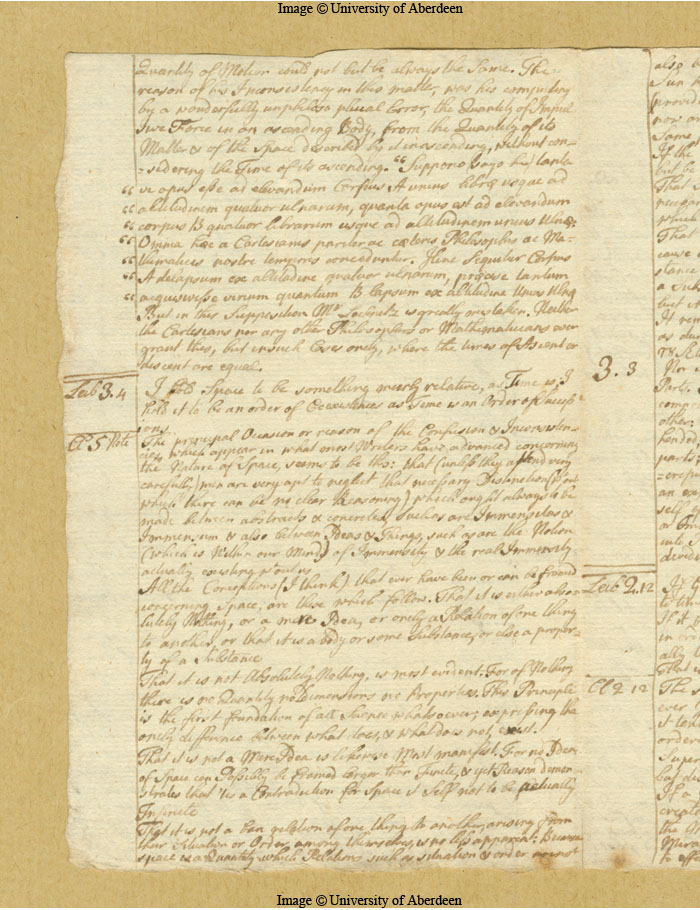 Image © University of Aberdeen
Quantity of Motion could not but be always the same. The
reason of his Inconsistency in this matter, was his computing
by a wonderfully unphilosophical Error, the Quantity of Impul
sive Force in an ascending Body, from the Quantity of its
Matter & of the space described by it in ascending, without con-
-sidering the Time of its ascending. "Suppono, says he, tanta
" vi opus esse ad elevandum Corpus A unius libræ usque ad
" altitudinem quatuor ulnarum, quanta opus est ad elevandum
" corpus B quatuor librarum usque ad altitudinem unius Ulnæ.
" Omnia hæc a Cartesianis pariter ac cæteris Philosophis ac Ma-
" thematicis nostri temporis conceduntur. Hinc sequitur Corpus
" A delapsum ex altitudine quatuor ulnarum, præcise tantum
" acquisivisse virium quantum B lapsum ex altitudine Unius Ulnæ
But in this Supposition Mr Leibnitz is greatly mistaken. Neither
the Cartesians nor any other Philosophers or Mathematicians ever
grant this, but in such Cases onely, where the times of Ascent or
descent are equal.
Leib 3.4
I hold Space to be something meerly relative, as Time is; I
hold it to be an order of Coexistences as Time is an Order of Success
ions.
Cl 5 Note
The principal Occasion or reason of the Confusion & Inconsisten-
cies, which appear in what most Writers have advanced concerning
the Nature of Space, seems to be this: that (unless they attend very
carefully) men are very apt to neglect that necessary Distinction (without
which there can be no clear Reasoning) which ought always to be
made between abstracts & concretes, such as are Immensitas &
Immensum & also between Ideas & Things, such as are the Notion
(which is Within our Mind) of Immensity & the real Immensity
actually existing without us
All the Conceptions (I think) that ever have been or can be framed
concerning Space, are these which follow. That it is either abso-
lutely Nothing, or a mere Idea, or onely a Relation of one thing
to another, or that it is a body or some substance, or else a proper-
ty of a Substance
That it is not Absolutely Nothing, is most evident. For of Nothing
there is no Quantity no Dimensions no Properties. This Principle
is the first foundation of all Science whatsoever; expressing the
onely difference between what does, & what does not, exist.
That it is not a Mere Idea is likewise Most manifest. For no Idea
of Space can Possibly be framed larger than Finite, & yet Reason demon-
strates that 'tis a Contradiction for Space it self not to be actually
Infinite
That it is not a bare relation of one thing to another, arising from
their situation or Order among themselves, is no less apparent: Because
space is a Quantity, which Relations such as situation & order are not
3.3
Leib 2.12
Cl 2 12
also
Same
If the
but be
That
which
That
cause
stance
a sub
but it
Parts
other
hended
parts:
self
into
in
ally
That
The
ever
order
Super
If a
creat
the
Image © University of Aberdeen